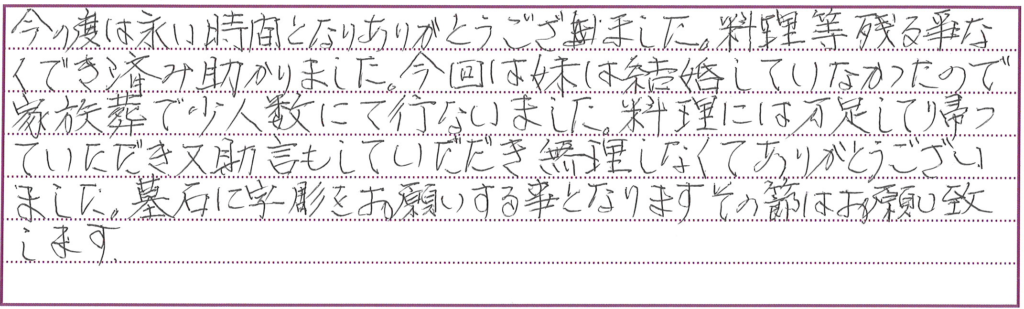 今の度は永い時間となりありがとうございました。料理等残る事な
くでき済み助かりました。今回は妹は結婚していなかったので
家族葬で少人数にて行ないました。料理には万足して帰っ
ていただき又助言もしていただき無理しなくてありがとうござい
ました。墓石に字彫をお願いする事となりますその節はお願い致
します。